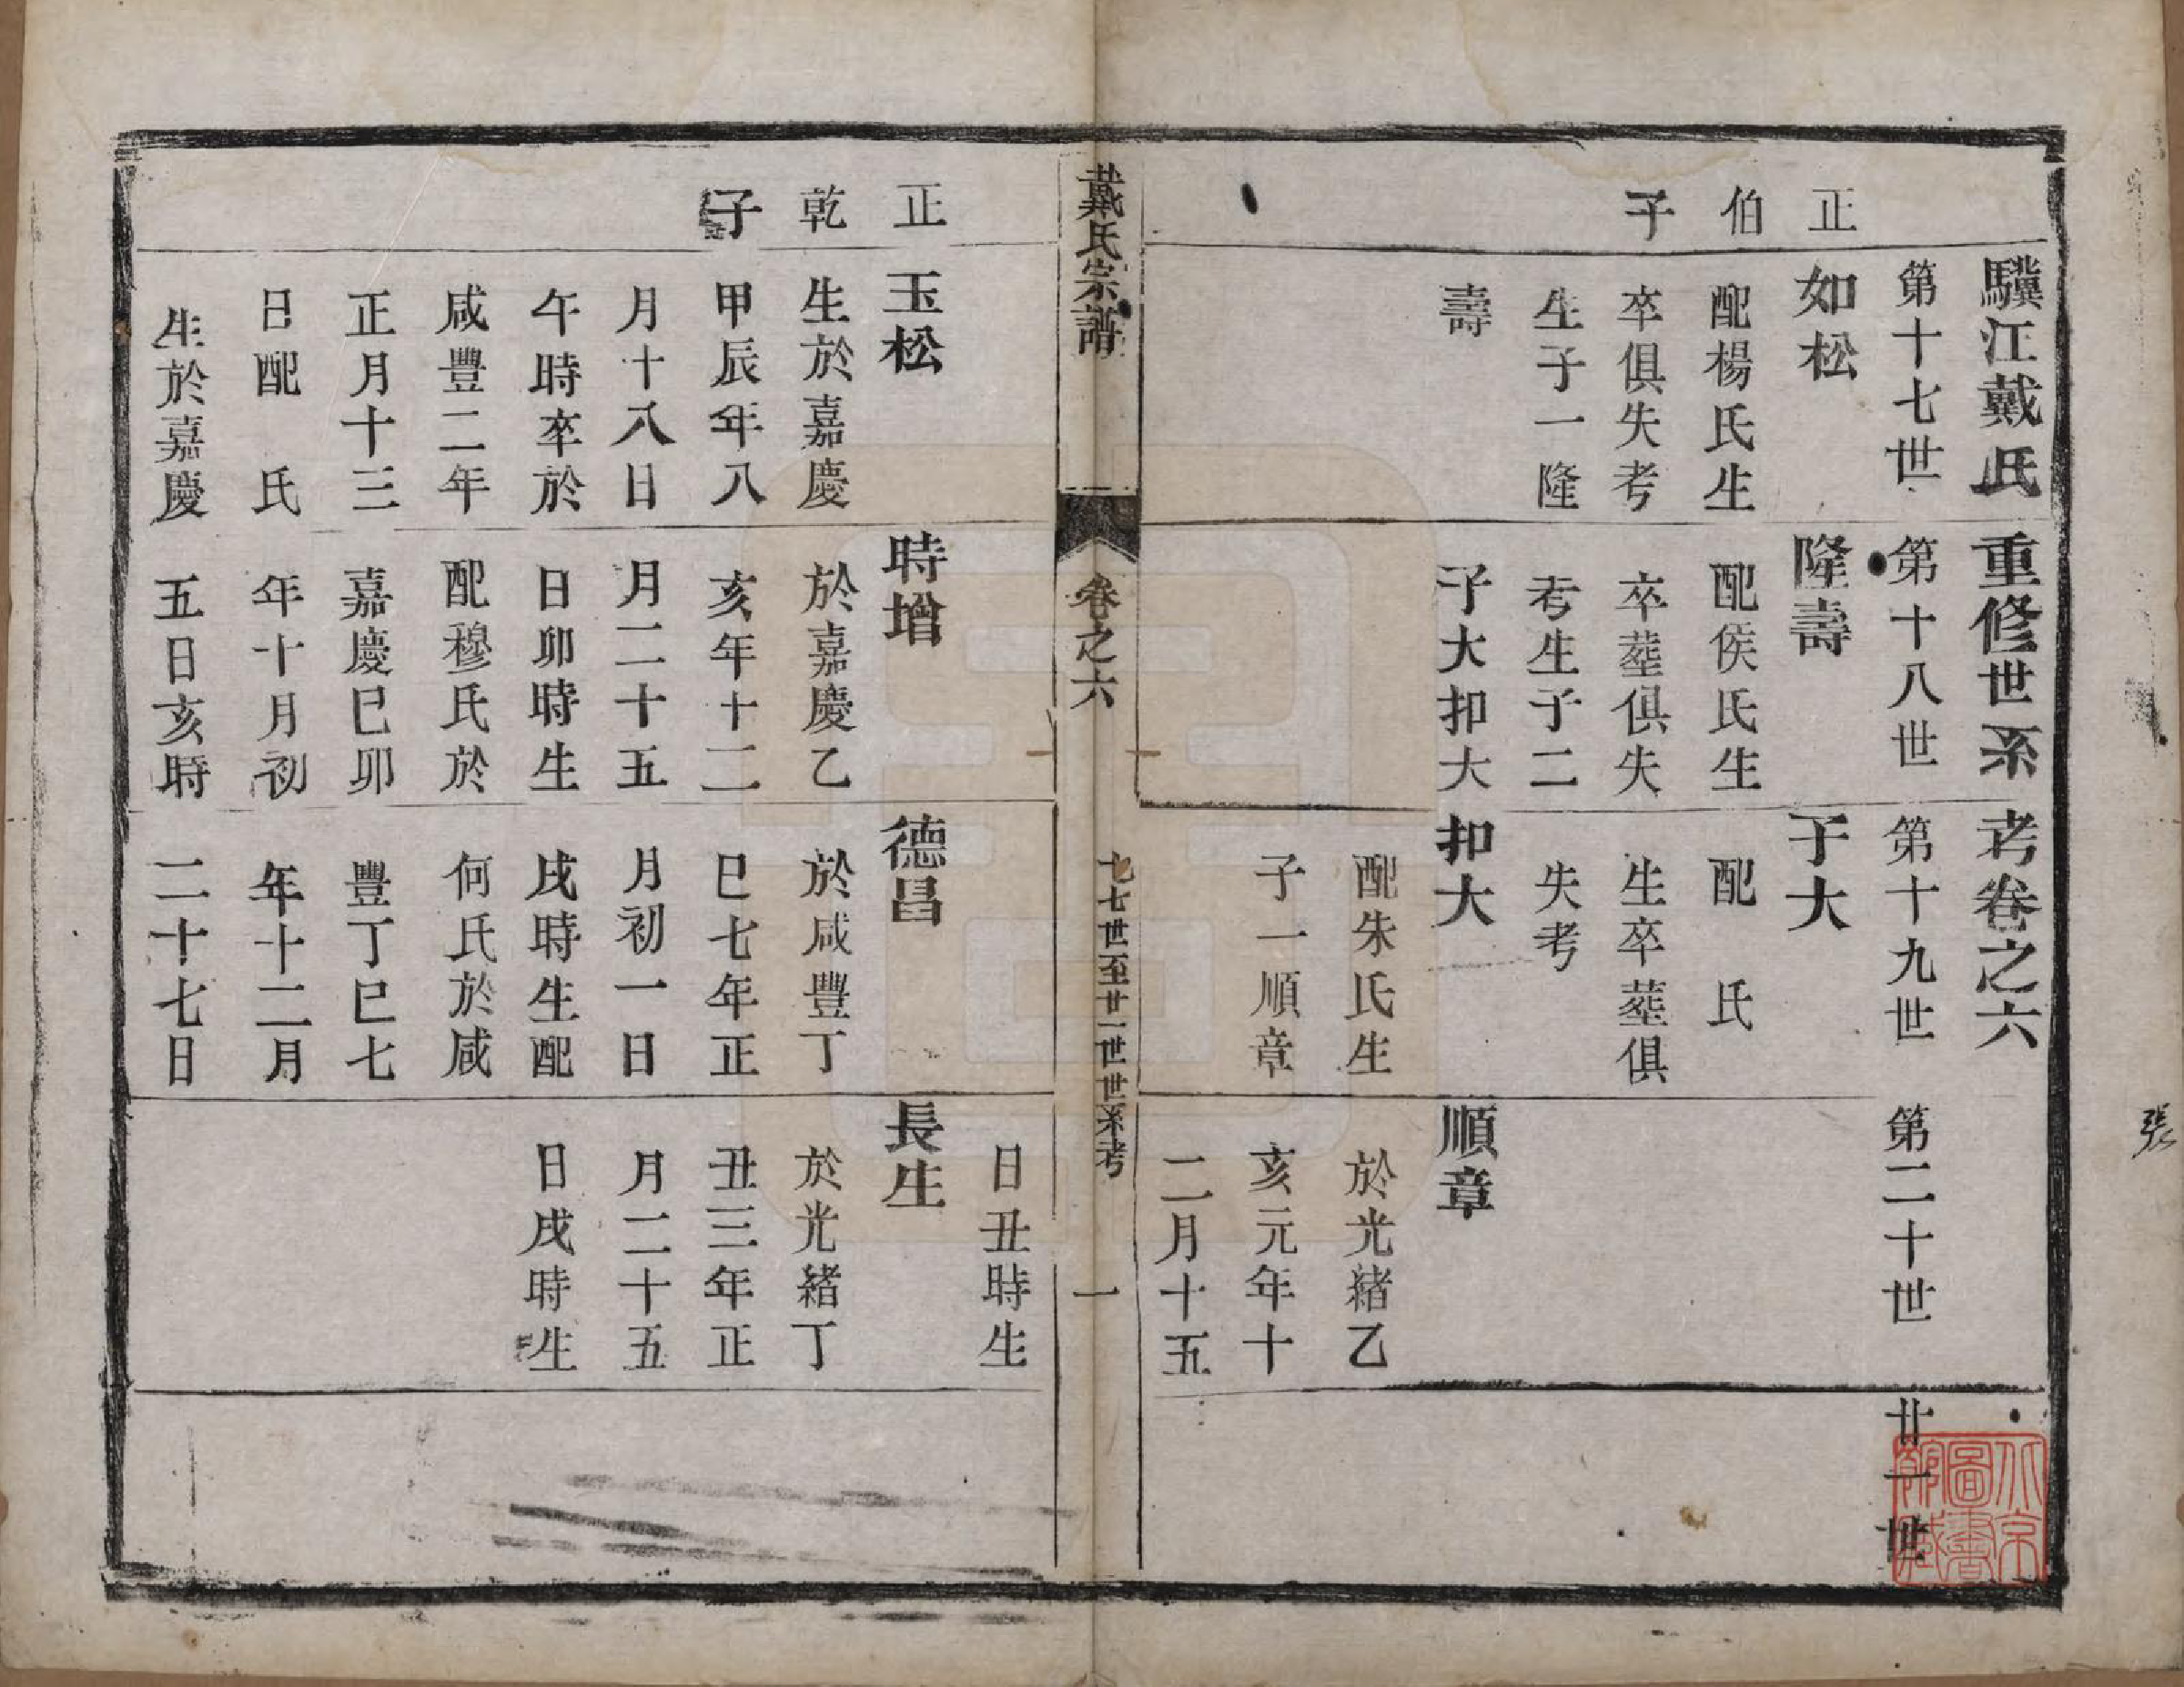 驥江戴氏重修世系考卷之六
第十七世
第十八世
第十九世
第二十世
廿一世
正伯子
如松
配楊氏生
卒俱失考
生子一隆
壽
隆壽
配侯氏生
卒塟俱失
考生子二
子大扣大
子大
配 氏
生卒塟俱
失考
扣大
配朱氏生
子一順章
順章
於光緒乙
亥元年十
二月十五
日丑時生
戴氏宗譜
卷之六
十七世至廿一世世系考
一
正乾子
玉松
生於嘉慶
甲辰年八
月十八日
午時卒於
咸豐二年
正月十三
日配 氏
生於嘉慶
時增
於嘉慶乙
亥年十二
月二十五
日卯時生
配穆氏於
嘉慶巳卯
年十月初
五日亥時
德昌
於咸豐丁
巳七年正
月初一日
戌時生配
何氏於咸
豐丁巳七
年十二月
二十七日
長生
於光緒丁
丑三年正
月二十五
日戌時生
北京圖書館藏
張